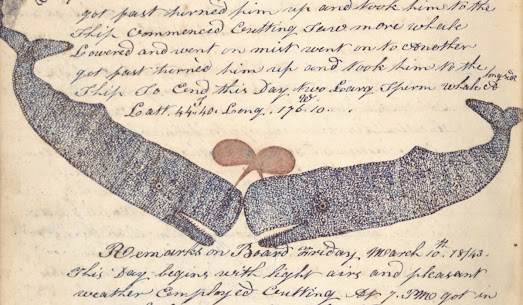 got fast turned him up and took him to the
Ship Commenced Cutting Saw more whale
Lowered and went on mist went on to another
got fast turned him up and took him to the
Ship So Ends this Day two Large Sperm whales
Latt 44.40 Long. 176.10 W
Remarks on Board Friday March 10th 1843
This Day begins with light airs and pleasant
weather Employed Cutting At 7. PM got in